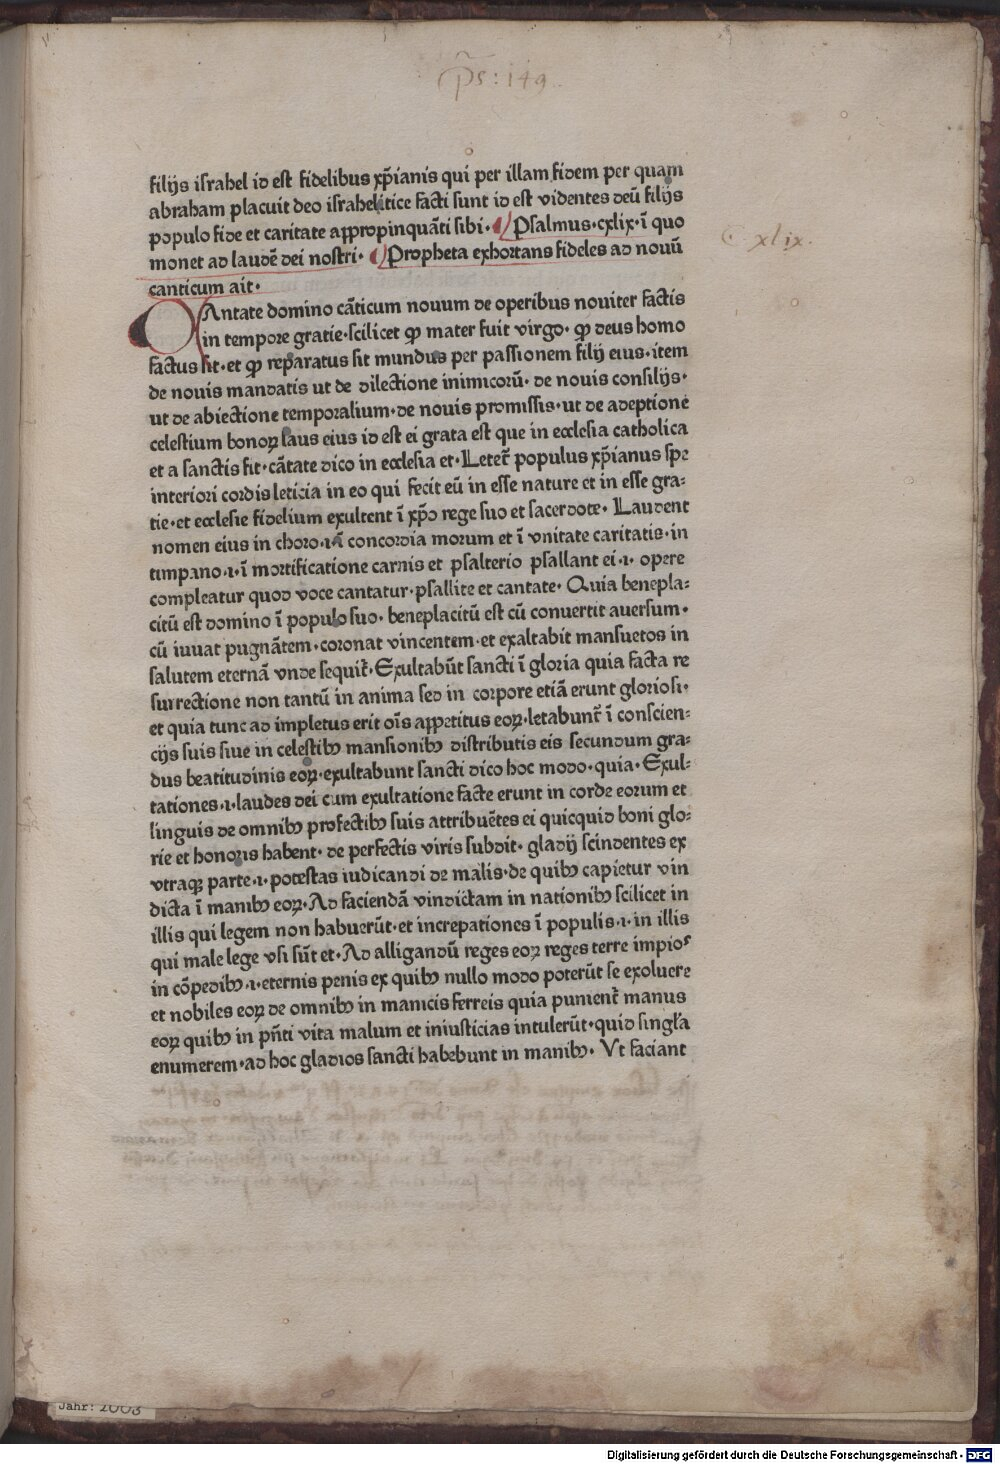 ps: 149
filijs israhel id est fidelibus xp̄ianis qui per illam fidem per quam
abraham placuit deo israhelitice facti sunt id est videntes deū filijs
populo fide et caritate appropinquāti sibi· Psalmus·cxlix·ī quo
C xlix.
monet ad laudē dei nostri· Propheta exhortans fideles ad nouū
canticum ait·
CAntate domino cāticum nouum de operibus nouiter factis
in tempore gratie·scilicet ꝙ mater fuit virgo· ꝙ deus homo
factus sit·et ꝙ reparatus sit mundus per passionem filij eius·item
de nouis mandatis ut de dilectione inimicorū· de nouis consilijs·
ut de abiectione temporalium·de nouis promissis·ut de adeptione
celestium bonoꝝ laus eius id est ei grata est que in ecclesia catholica
et a sanctis fit·cātate dico in ecclesia et·Letet᷑ populus xp̄ianus spe
interiori cordis leticia in eo qui fecit eū in esse nature et in esse gra⸗
tie·et ecclesie fidelium exultent ī xp̄o rege suo et sacerdote· Laudent
nomen eius in choro·1·ī concordia morum et ī vnitate caritatis·in
timpano·1·ī mortificatione carnis et psalterio psallant ei·1· opere
compleatur quod voce cantatur·psallite et cantate· Quia benepla⸗
citū est domino ī populo suo· beneplacitū est cū conuertit auersum·
cū iuuat pugnātem·coronat vincentem·et exaltabit mansuetos in
salutem eternā vnde sequit᷑·Exultabūt sancti ī gloria quia facta re
surrectione non tantū in anima sed in corpore etiā erunt gloriosi·
et quia tunc ad impletus erit oīs appetitus eoꝝ·letabunt᷑ ī conscien⸗
cijs suis siue in celestibꝫ mansionibꝫ distributis eis secundum gra⸗
dus beatitudinis eoꝝ·exultabunt sancti dico hoc modo·quia·Exul⸗
tationes·1·laudes dei cum exultatione facte erunt in corde eorum et
linguis de omnibꝫ profectibꝫ suis attribuētes ei quicquid boni glo⸗
rie et honoris habent· de perfectis viris subdit· gladij scindentes ex
vtraqꝫ parte·1·potestas iudicandi de malis·de quibꝫ capietur vin
dicta ī manibꝫ eoꝝ·Ad faciendā vindictam in nationibꝫ scilicet in
illis qui legem non habuerūt·et increpationes ī populis·1·in illis
qui male lege vsi sūt et·Ad alligandū reges eoꝝ reges terre impios
in cōpedibꝫ·1·eternis penis ex quibꝫ nullo modo poterūt se exoluere
et nobiles eoꝝ de omnibꝫ in manicis ferreis quia punient᷑ manus
eoꝝ quibꝫ in pn̄ti vita malum et iniusticias intulerūt·quid singl̄a
enumerem·ad hoc gladios sancti habebunt in manibꝫ· Vt faciant
Jahr: 2003
Digitalisierung gefördert durch die Deutsche Forschungsgemeinschaft - DFG